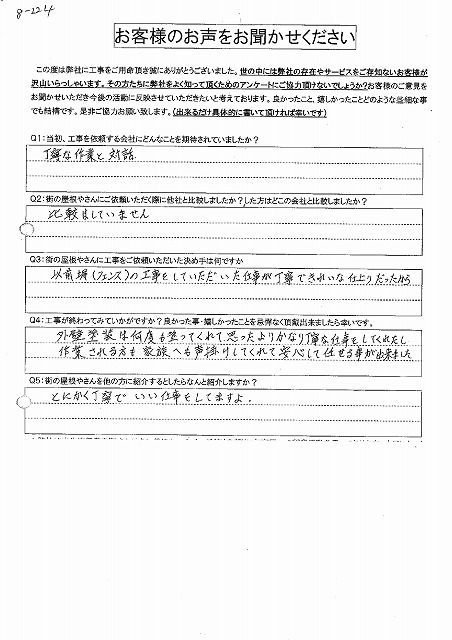 8-224
お客様のお声をお聞かせください
この度は弊社に工事をご用命頂き誠にありがとうございました。世の中には弊社の存在やサービスをご存知ないお客様が
沢山いらっしゃいます。その方たちに弊社をよく知って頂くためのアンケートにご協力頂けないでしょうか?お客様のご意見を
お聞かせいただき今後の活動に反映させていただきたいと考えております。良かったこと、嬉しかったことどのような些細な事
でも結構です。是非ご協力お願い致します。(出来るだけ具体的に書いて頂ければ幸いです)
Q1:当初、工事を依頼する会社にどんなことを期待されていましたか?
丁寧な作業と対話
Q2:街の屋根やさんにご依頼いただく際に他社と比較しましたか?した方はどこの会社と比較しましたか?
比較はしていません
Q3:街の屋根やさんに工事をご依頼いただいた決め手は何ですか
以前塀(フェンス)の工事をしていただいた仕事が丁寧できれいな仕上りだったから
Q4:工事が終わってみていかがですか?良かった事・嬉しかったことを忌憚なく頂戴出来ましたら幸いです。
外壁塗装は何度も塗ってくれて思ったよりかなり丁寧な仕事をしてくれたし
作業される方も家族へも声掛けしてくれて安心して任せる事が出来ました
Q5:街の屋根やさんを他の方に紹介するとしたらなんと紹介しますか?
とにかく丁寧でいい仕事をしてますよ.